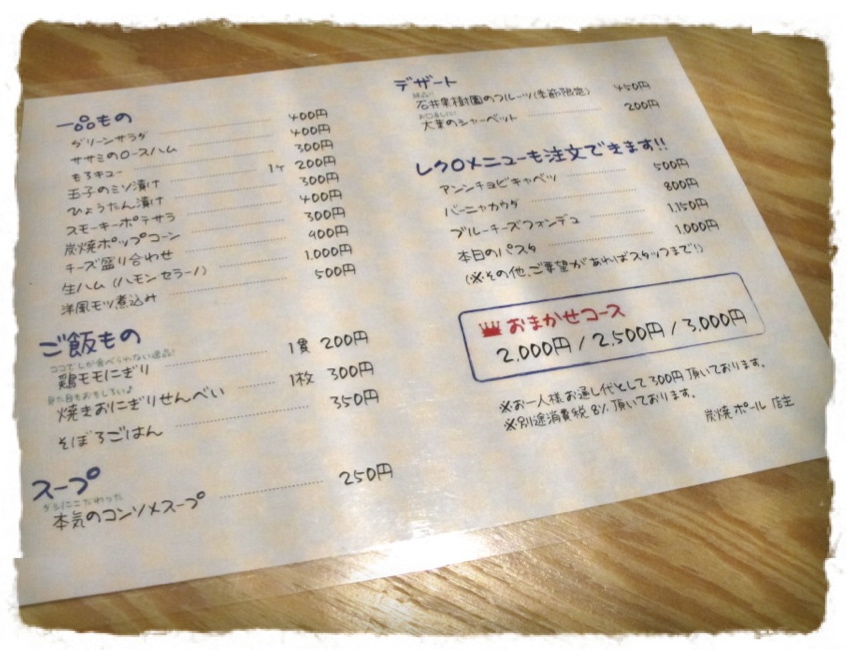 一品もの
グリーンサラダ 400円
ササミのロースハム 400円
もろキュー 300円
玉子のミソ漬け 1ヶ 200円
ひょうたん漬け 300円
スモーキーポテサラ 400円
炭焼ポップコーン 300円
チーズ盛り合わせ 900円
生ハム(ハモンセラーノ) 1,000円
洋風モツ煮込み 500円
ご飯もの
ココでしか食べられない逸品!
鶏モモにぎり 1貫 200円
見た目もおもしろい♪
焼きおにぎりせんべい 1枚 300円
そぼろごはん 350円
スープ
ダシにこだわった
本気のコンソメスープ 250円
デザート
石井果樹園のフルーツ(季節限定) 450円
大葉のシャーベット 200円
レクロメニューも注文できます!!
アンチョビキャベツ 500円
バーニャカウダ 800円
ブルーチーズフォンデュ 1,150円
本日のパスタ 1,000円
(※その他、ご要望があればスタッフまで!)
おまかせコース
2,000円/2,500円/3,000円
※お一人様お通し代として300円頂いております。
※別途消費税8%頂いております。
炭焼ポール 店主